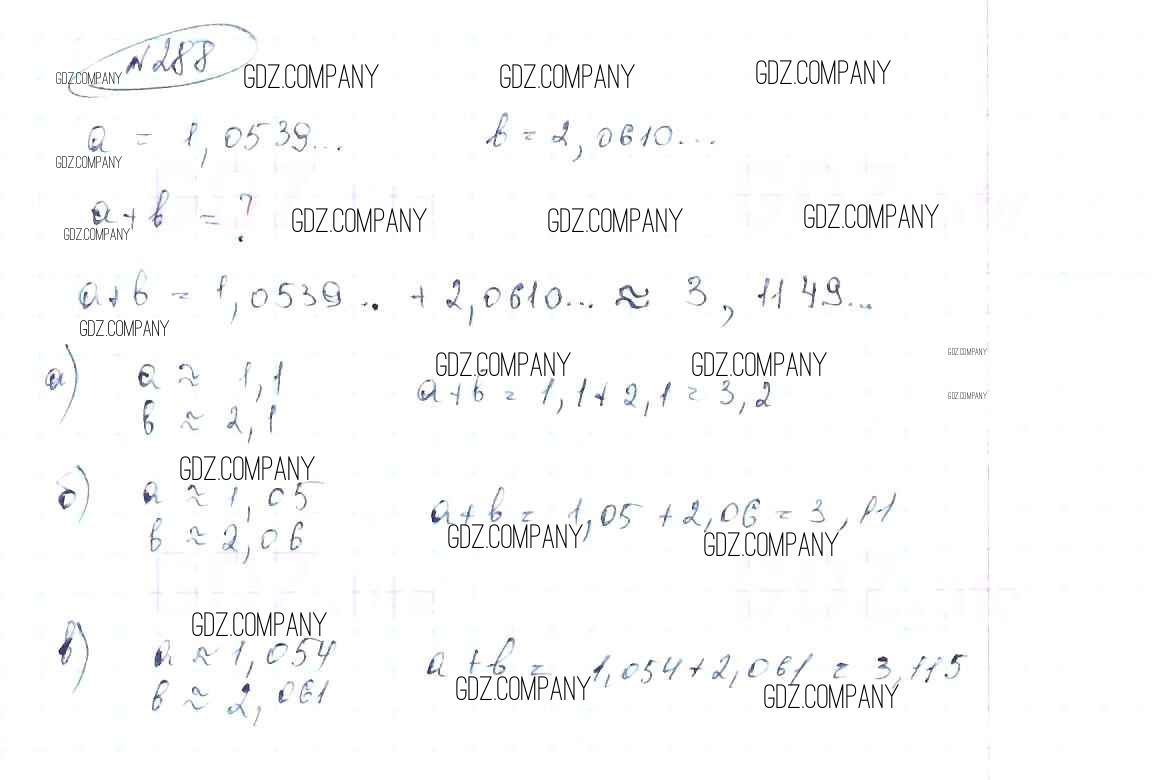 №288
GDZ.COMPANY GDZ.COMPANY GDZ.COMPANY GDZ.COMPANY
a = 1,0539... в = 2,0610...
GDZ.COMPANY
a+в = ?
GDZ.COMPANY GDZ.COMPANY GDZ.COMPANY GDZ.COMPANY
a+в = 1,0539... + 2,0610... ≈ 3,1149...
GDZ.COMPANY
GDZ.COMPANY GDZ.COMPANY GDZ.COMPANY
а) a ≈ 1,1 a+в = 1,1+2,1 = 3,2
GDZ.COMPANY
в ≈ 2,1
GDZ.COMPANY
б) a ≈ 1,05 a+в = 1,05+2,06 = 3,11
в ≈ 2,06
GDZ.COMPANY GDZ.COMPANY
GDZ.COMPANY
в) a ≈ 1,054 a+в = 1,054+2,061 = 3,115
в ≈ 2,061
GDZ.COMPANY GDZ.COMPANY